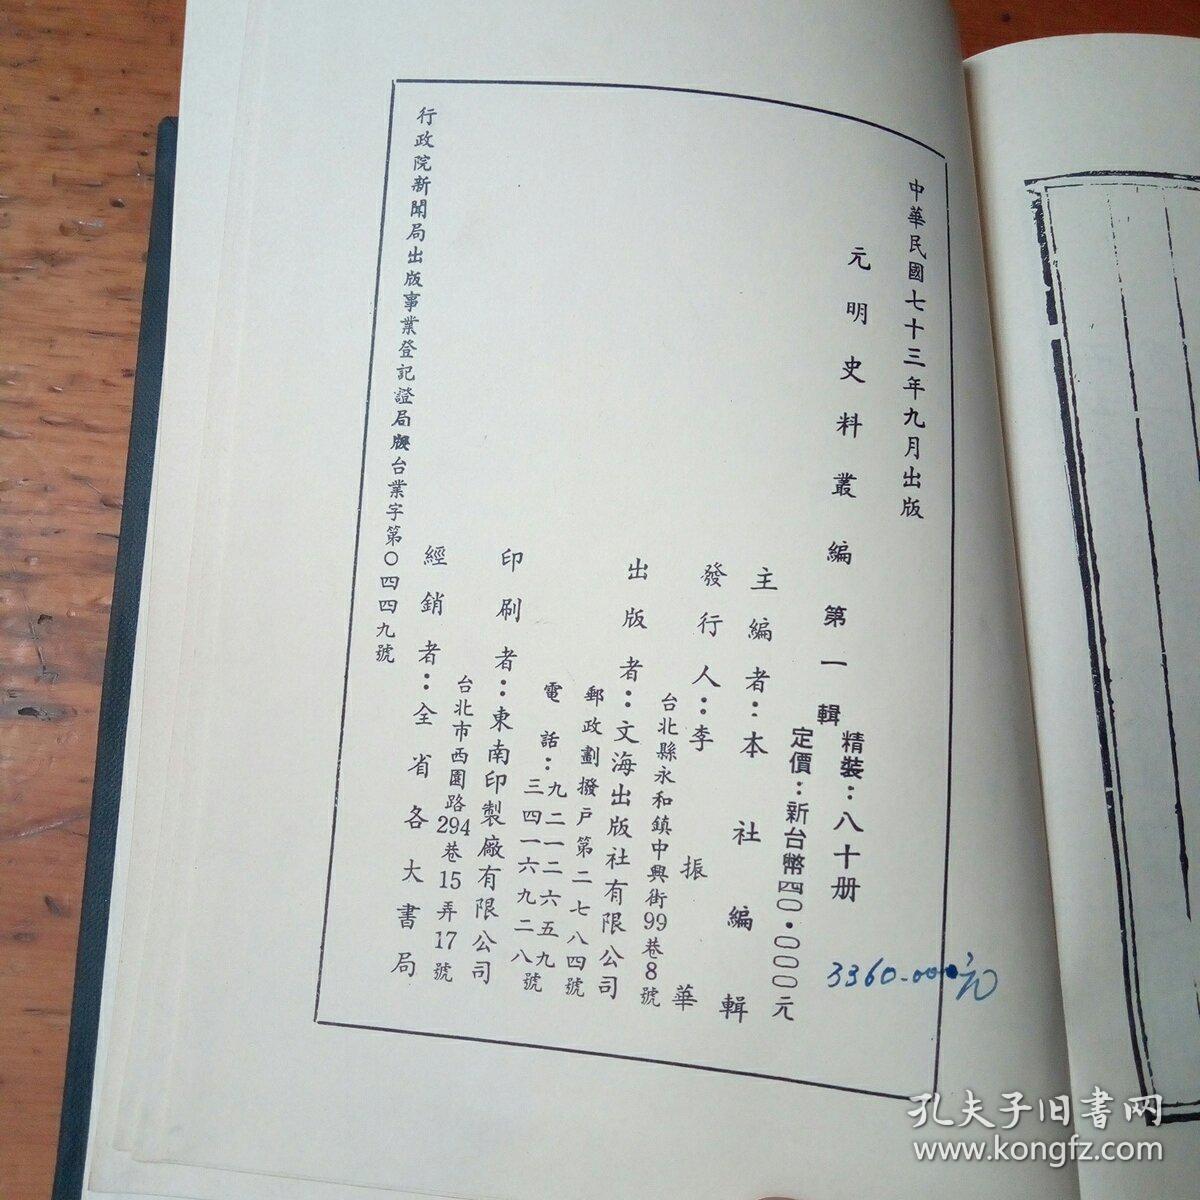 中華民國七十三年九月出版
元明史料叢編第一輯
精裝：八十册
定價：新台幣四〇·〇〇〇元
3360.000元
主編者：本社編輯
發行人：李振華
台北縣永和鎮中興街99巷8號
出版者：文海出版社有限公司
郵政劃撥戶第二七八四號
電話：九二一二六五九
三四一六九二八號
印刷者：東南印製廠有限公司
台北市西園路294巷15弄17號
經銷者：全省各大書局
行政院新聞局出版事業登記證局版台業字第〇四四九號
孔夫子旧書网
www.kongfz.com